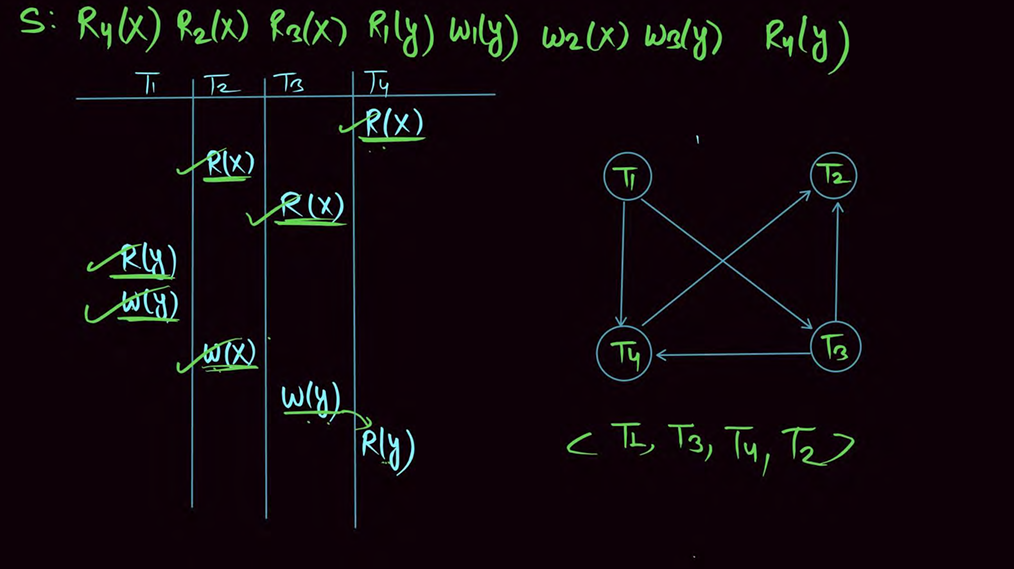 S: R4(X) R2(X) R3(X) R1(y) W1(y) W2(X) W3(y) R4(y)
T1 T2 T3 T4
R(X)
R(X)
R(X)
R(y)
W(y)
W(X)
W(y)
R(y)
T1 T2
T4 T3
< T1, T3, T4, T2 >